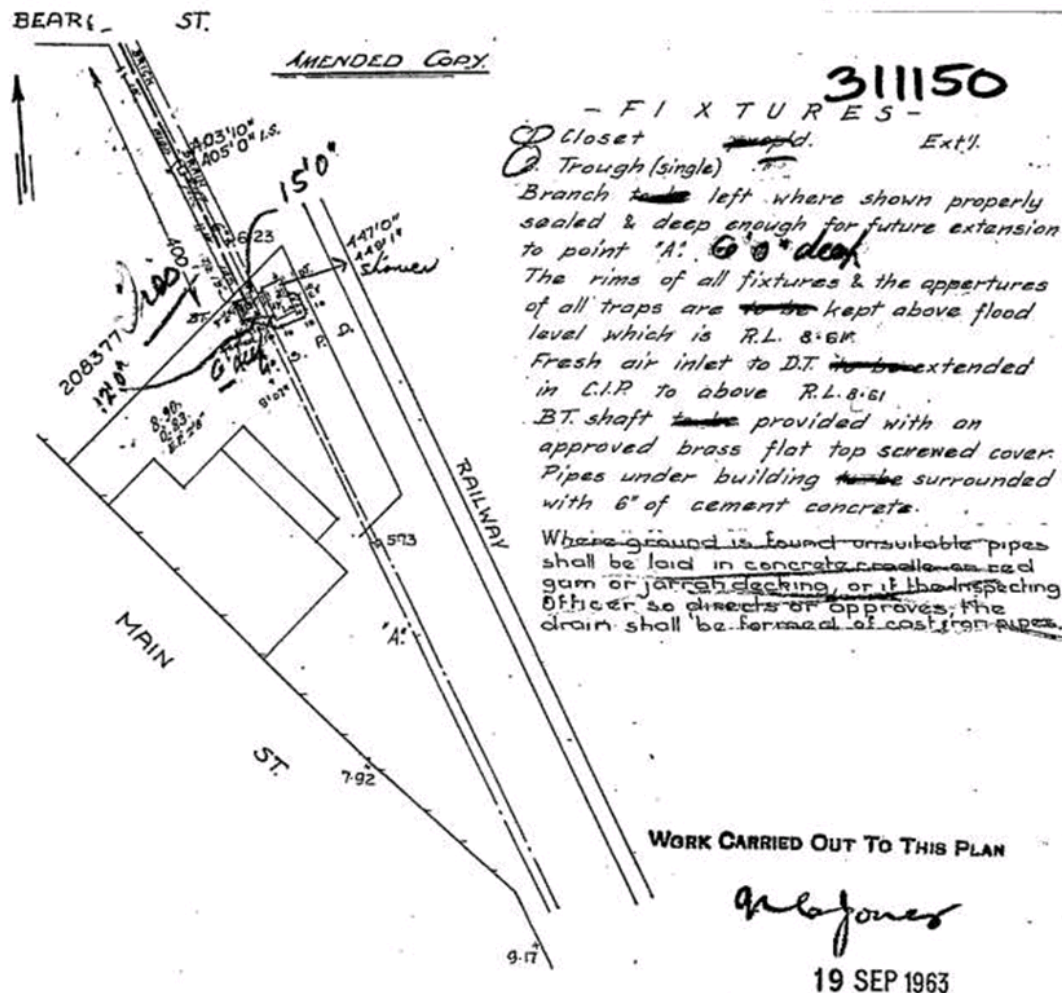 ST.
AMENDED COPY.
311150
- FIXTURES -
Closet Ext'g.
Trough (single)
Branch to be left where shown properly
sealed & deep enough for future extension
to point "A". 6'0" deep
The rims of all fixtures & the appertures
of all traps are to be kept above flood
level which is R.L. 8.61
Fresh air inlet to D.T. to be extended
in C.I.P. to above R.L. 8.61
BT. shaft to be provided with an
approved brass flat top screwed cover.
Pipes under building to be surrounded
with 6" of cement concrete.
Where ground is found unsuitable pipes
shall be laid in concrete cradle or red
gum or jarrah decking, or if the Inspecting
Officer so directs or approves, the
drain shall be formed of cast iron pipes.
BRICK
DRAIN
A03'10"
A05'0" I.S.
15'0"
6.23
A47'0"
A49'1"
shower
400'
BT.
208377
12'0"
S. P. D.
8.90
0.83
RAILWAY
5.73
"A".
MAIN
ST.
7.92
9.17
WORK CARRIED OUT TO THIS PLAN
Jones
19 SEP 1963